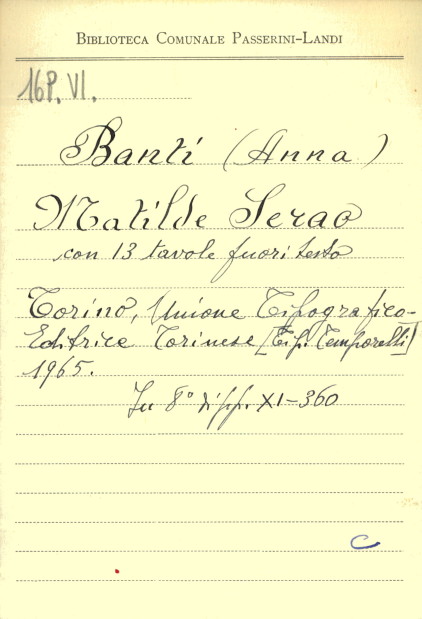 BIBLIOTECA COMUNALE PASSERINI-LANDI
16P. VI.
Banti (Anna)
Matilde Serao
con 13 tavole fuori testo
Torino, Unione Tipografico-
Editrice Torinese [Tip. Temporelli]
1965.
In 8° di pp. XI-360
C